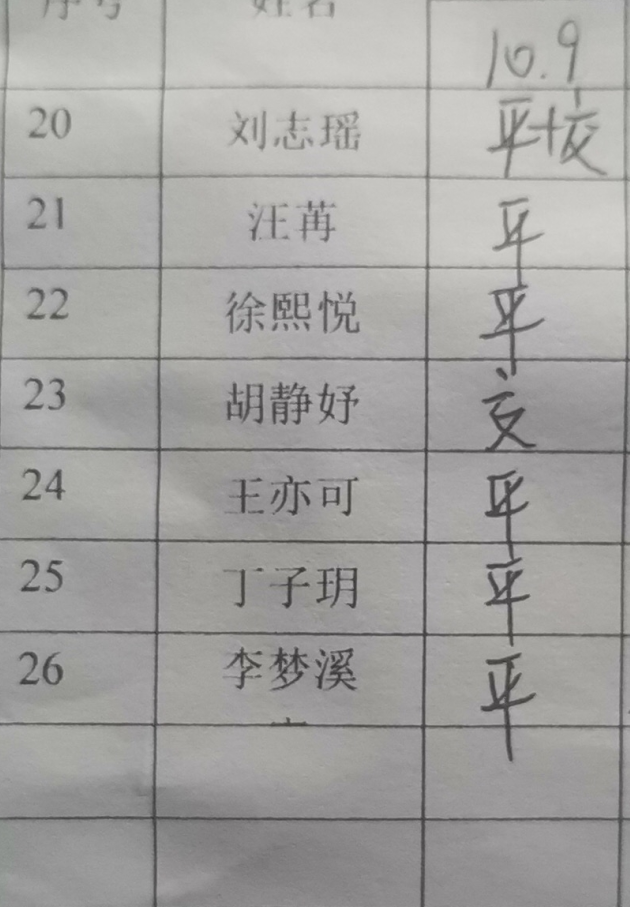 序号 姓名
10.9
20 刘志瑶 平+交
21 汪苒 平
22 徐熙悦 平
23 胡静妤 交
24 王亦可 平
25 丁子玥 平
26 李梦溪 平